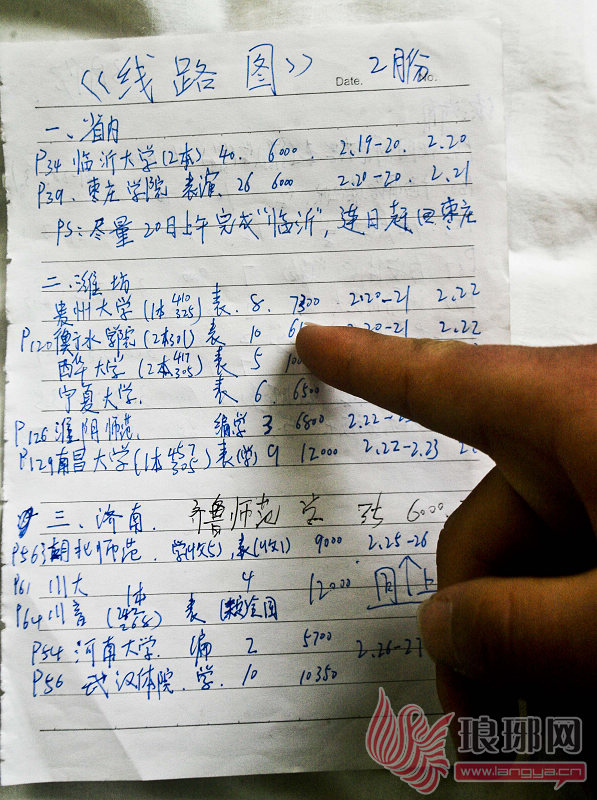 《线路图》 Date. 2月份 No.
一、省内
P34 临沂大学(2本) 40. 6000. 2.19-20. 2.20
P39. 枣庄学院 表演. 26 6000 2.20-20. 2.21
PS:尽量20日上午完成"临沂",连日赶回枣庄
二、潍坊
贵州大学(1本 410 325) 表. 8. 7300 2.20-21 2.22
P120 衡水学院(2本301) 表 10 2.20-21 2.22
西华大学(2本 417 305) 表 5
宁夏大学. 表 6 6500
P126 淮阴师范. 编学 3 6800 2.22-
P129 南昌大学(1本 457 305) 表(学) 9 12000 2.22-2.23
三、济南. 齐鲁师范 6000
P56 湖北师范. 学(收5),表(收1) 9000 2.25-26
P61 川大 1本 4 12000
P64 川音 (242 268) 表 上
P54 河南大学. 编 2 5700 2.26-27
P56 武汉体院. 学. 10 10350
琅琊网
www.langya.cn